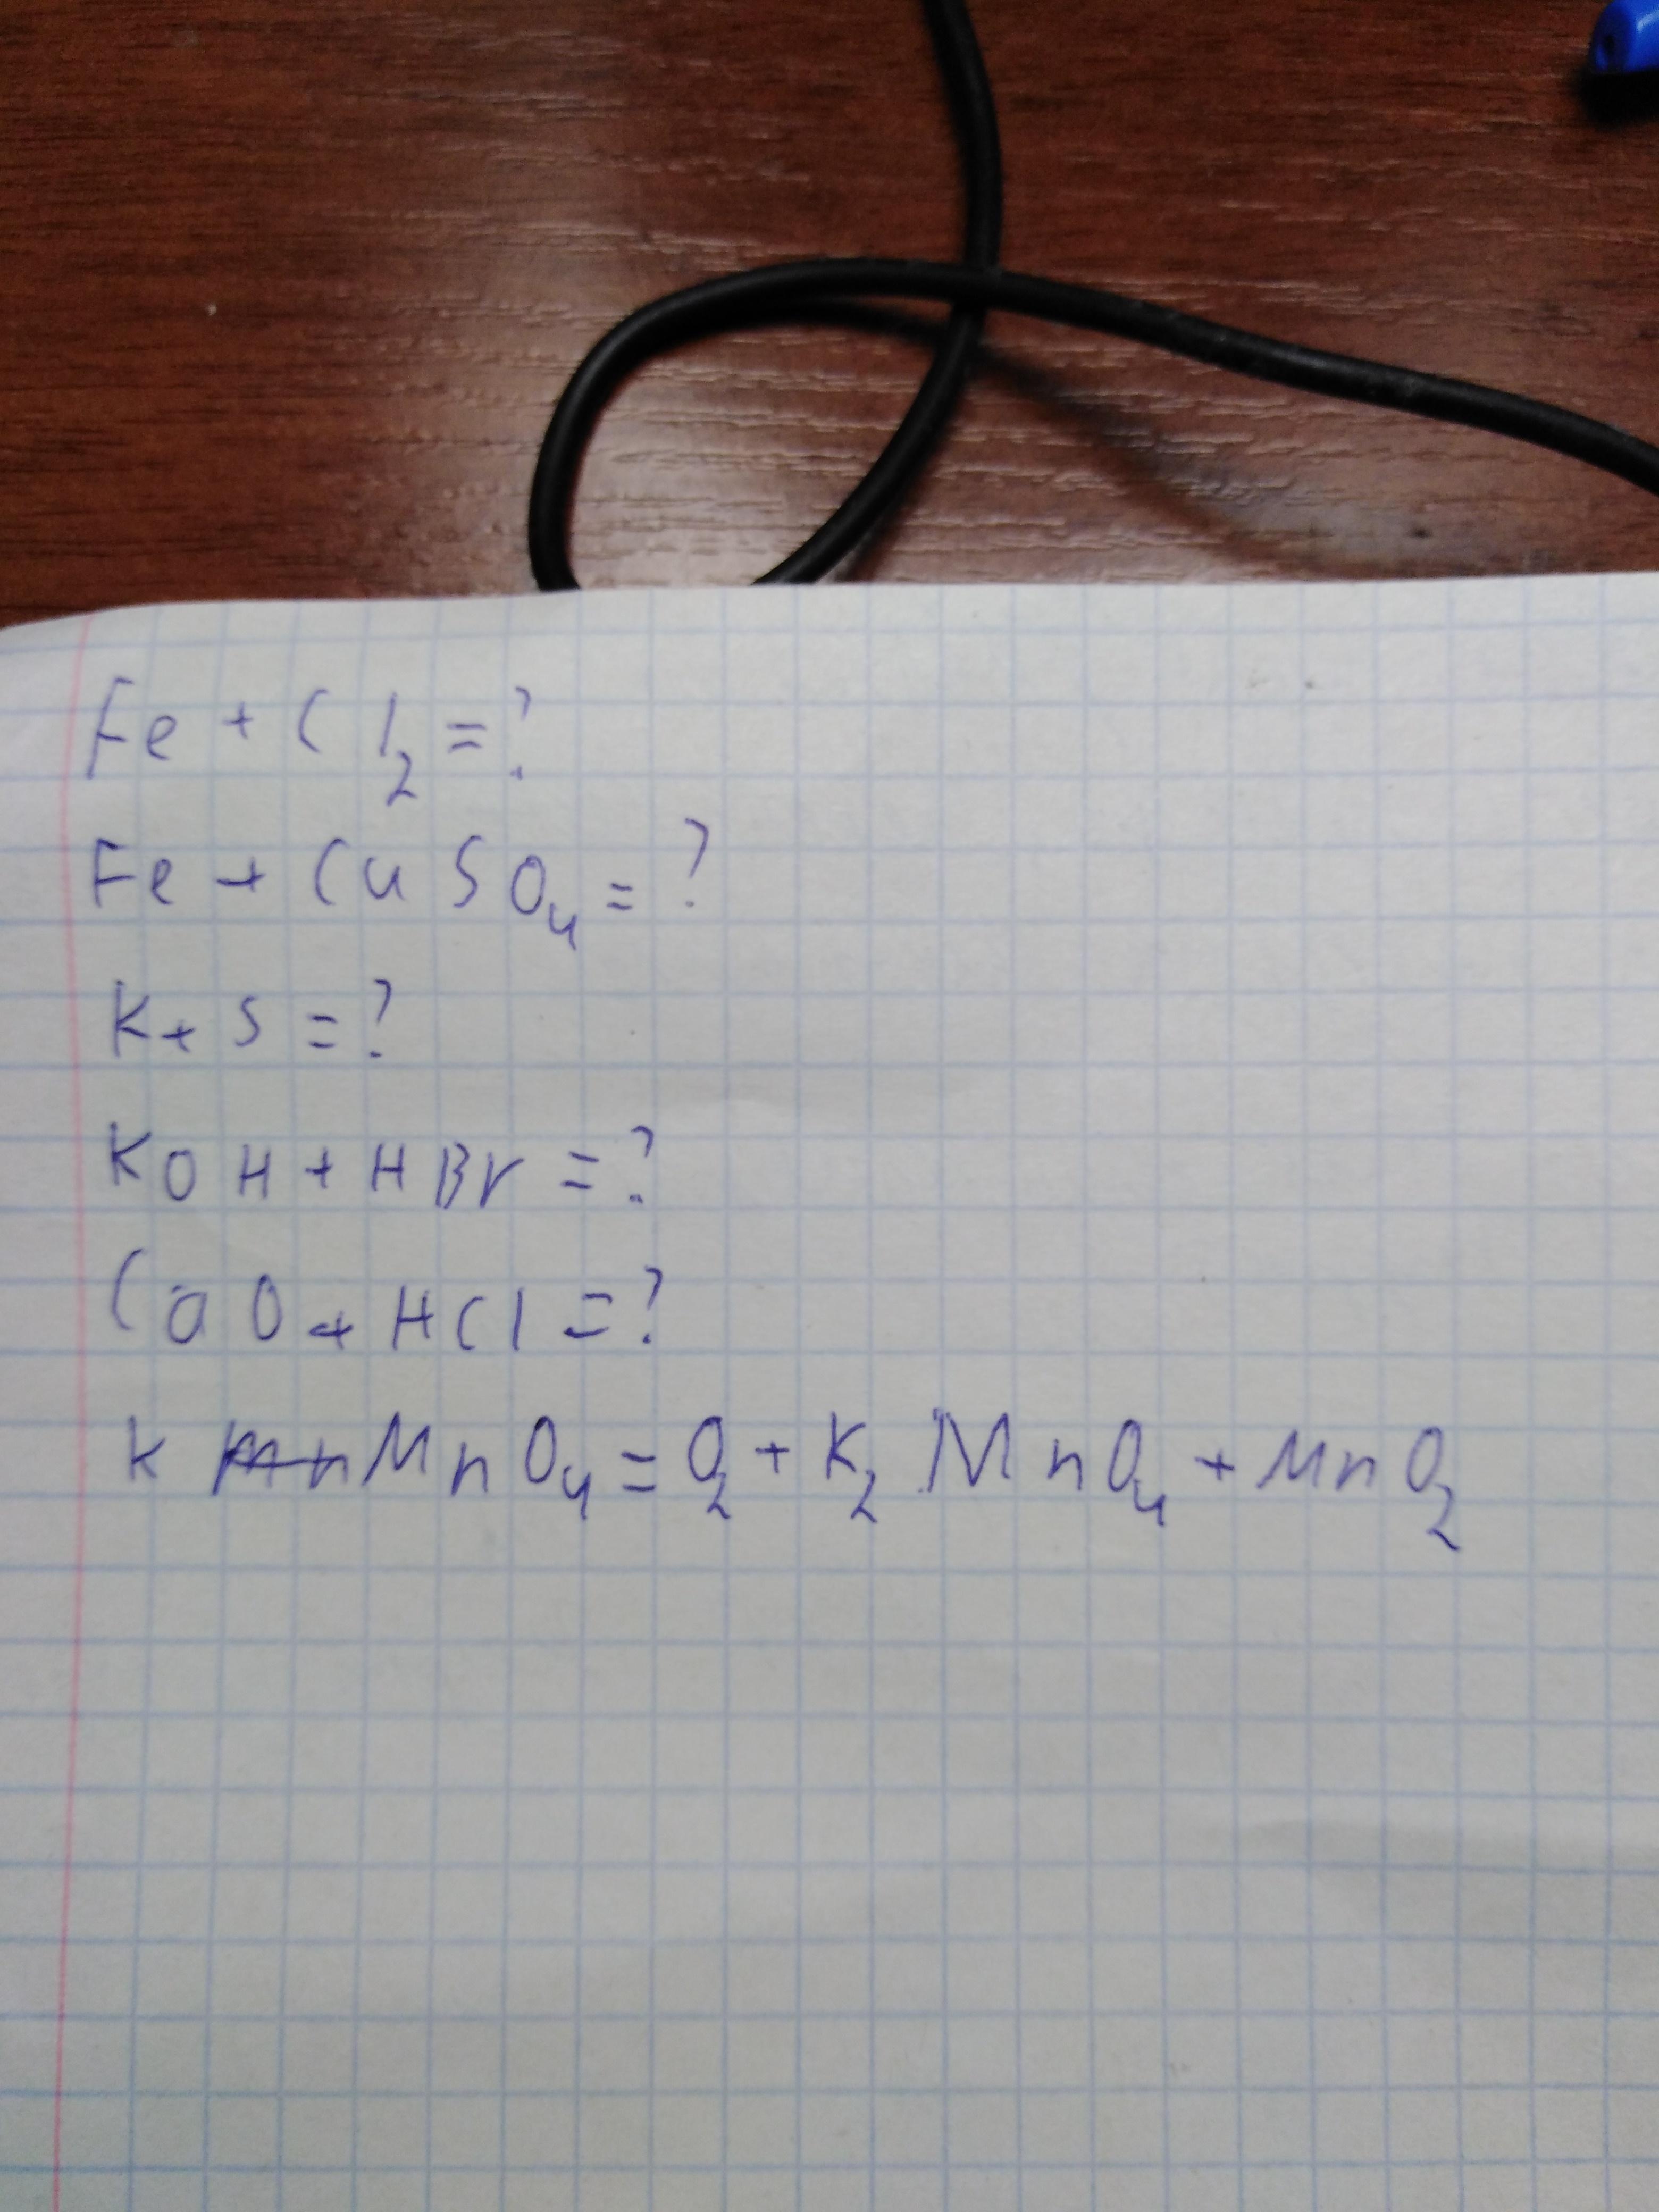 Fe + Cl₂ = ?
Fe + CuSO₄ = ?
K + S = ?
KOH + HBr = ?
CaO + HCl = ?
K MnO₄ = O₂ + K₂MnO₄ + MnO₂